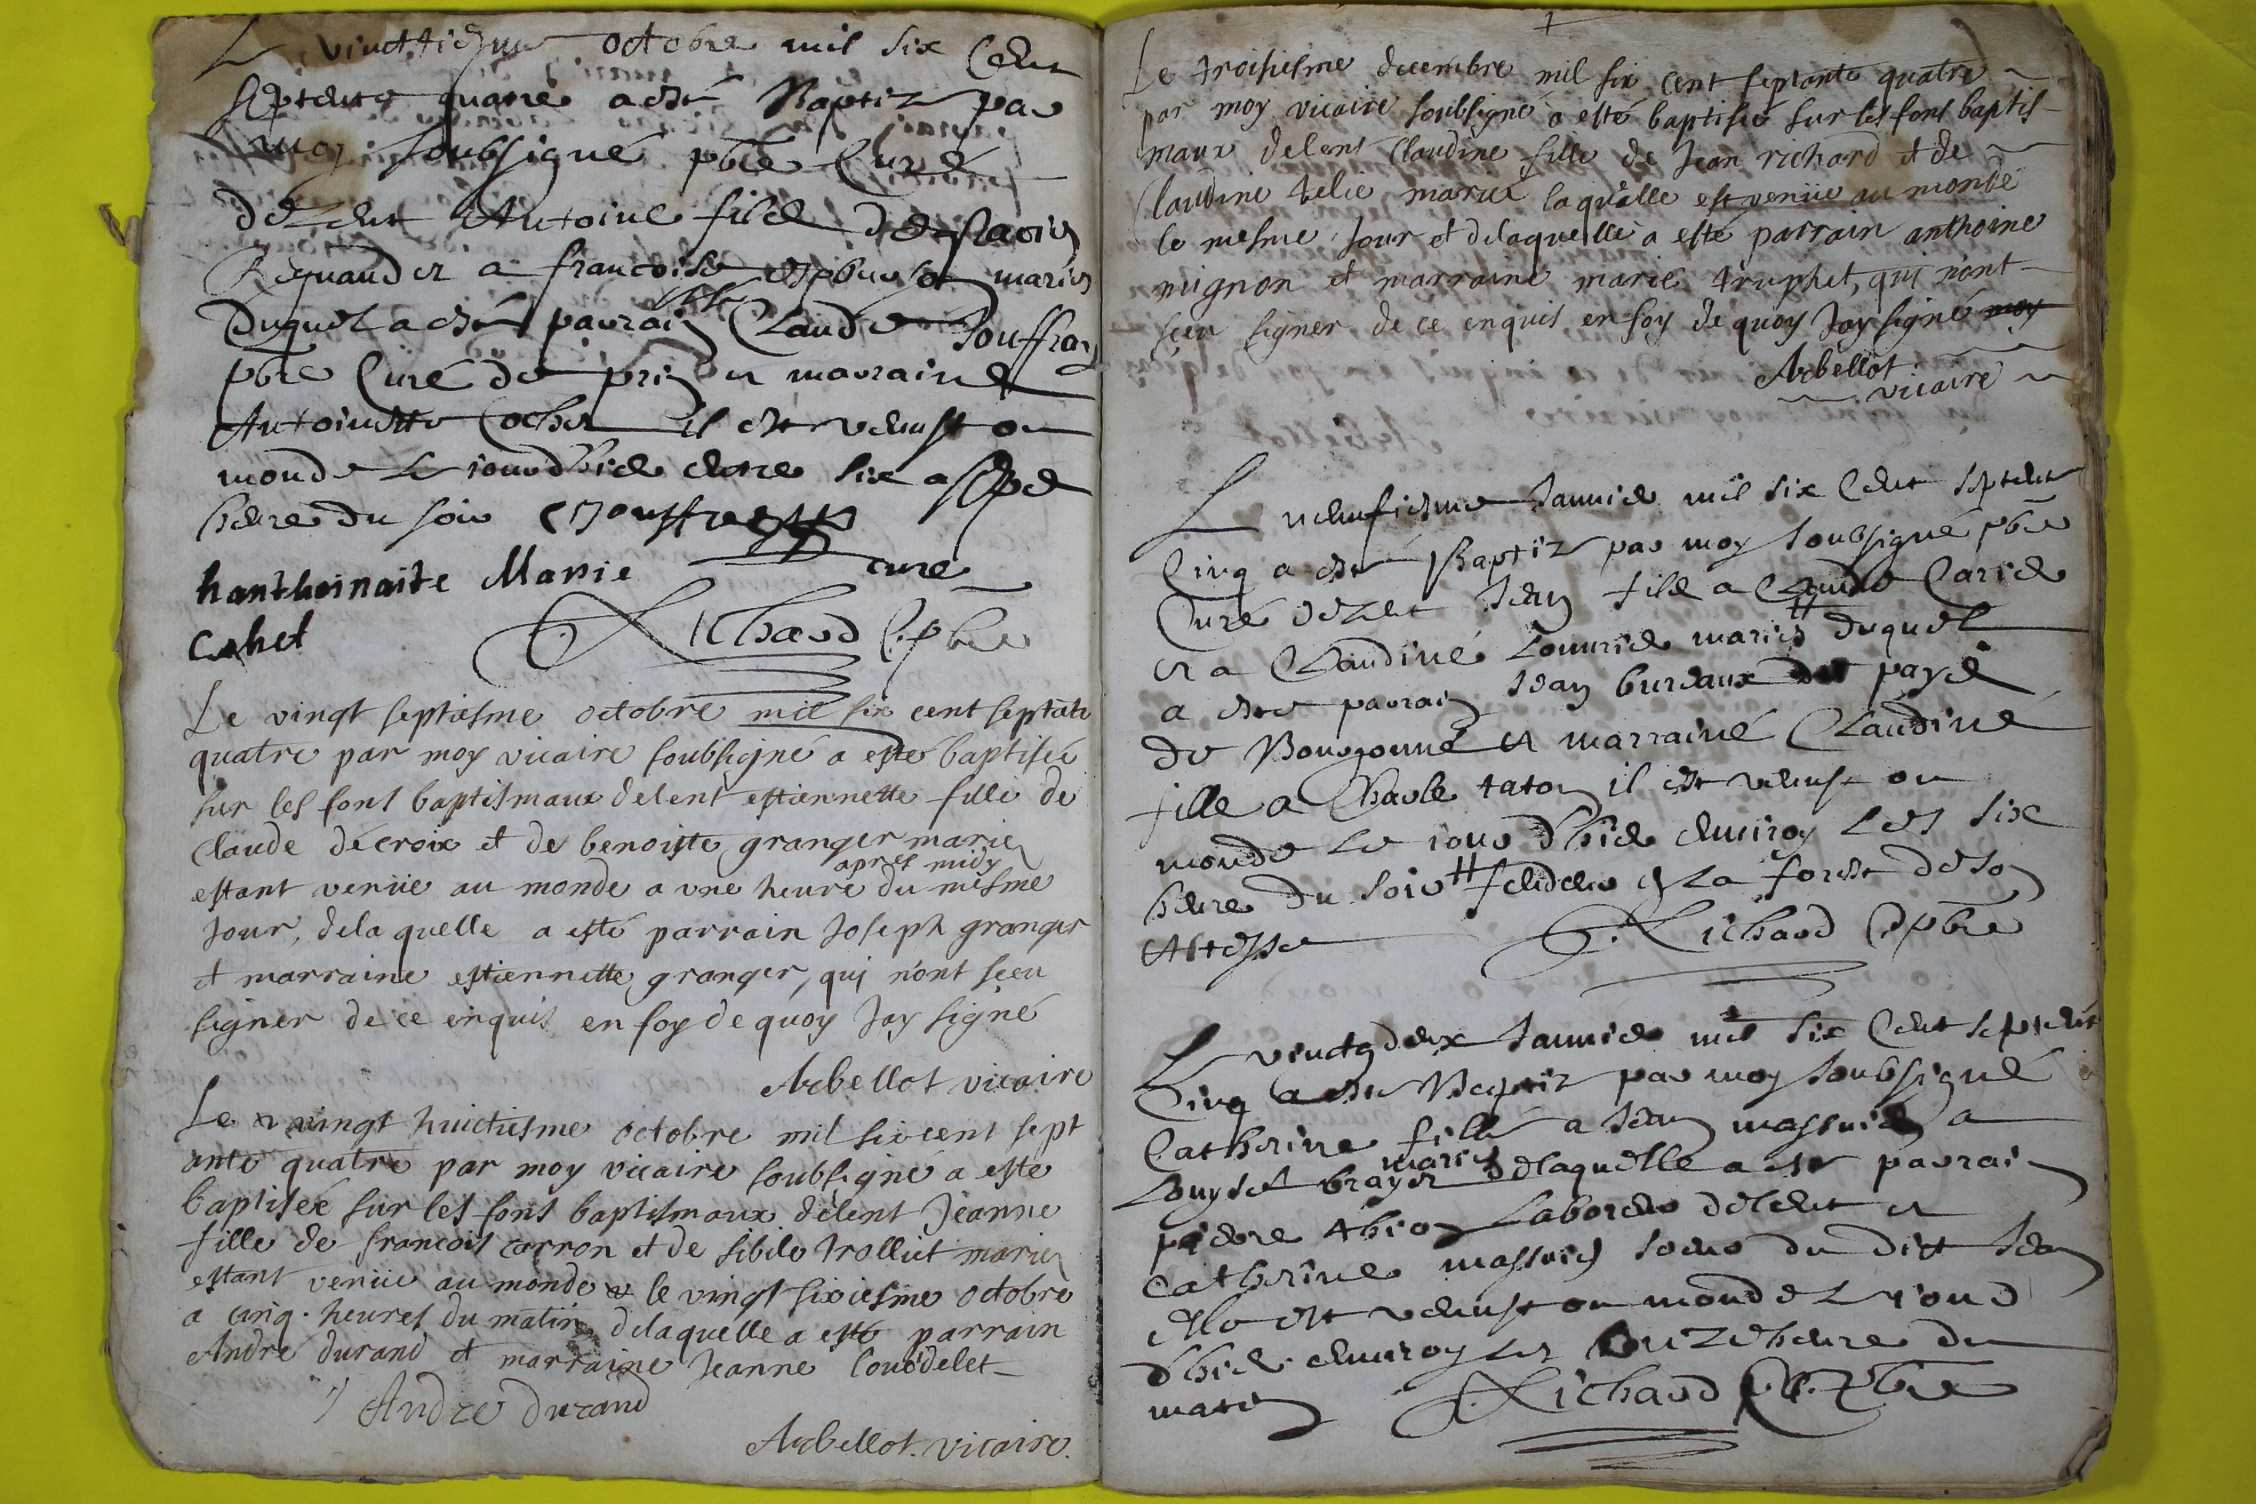 octobre mil six Cent
septente quatre a esté Baptiz par
moy soubsigné pbre Curé
dezent Antoine filz de
a francoise mariés
duquel a esté parrain Claude Jouffray
pbre Curé de et marraine
Antoinette Cochet il est venust ou
monde le jour d'hier entre six a sept
heure du soir Jouffray
hanthoinaite Marie curé
Cohet Richard C. pbre
Le vingt septiesme octobre mil six cent septante
quatre par moy vicaire soubsigné a esté baptisée
sur les fonts baptismaux delent estiennette fille de
Claude decroix et de benoiste granger mariez
apres midy
estant venüe au monde a une heure du mesme
Jour, delaquelle a esté parrain Joseph granger
et marraine estiennette granger, qui n'ont sçeu
signer de ce enquis en foy de quoy Jay signé
Arbellot vicaire
Le vingt huictiesme octobre mil six cent sept
ante quatre par moy vicaire soubsigné a esté
baptisée sur les fonts baptismaux delent Jeanne
fille de francois carron et de sibile trollict mariez
estant venüe au monde le vingt sixiesme octobre
a cinq heures du matin delaquelle a esté parrain
Andre durand et marraine Jeanne
Andre durand
Arbellot vicaire
Le troisiesme decembre mil six cent septante quatre
par moy vicaire soubsigné a esté baptisée sur les fons baptis-
maux delent Claudine fille de Jean richard et de
Claudine mariez laquelle est venüe au monde
le mesme Jour et delaquelle a esté parrain anthoine
mignon et marraine marie truphet, qui n'ont
sçeu signer de ce enquis en foy de quoy Jay signé moy
Arbellot
vicaire
Le neufiesme Janvier mil six Cent septent
Cinq a esté Baptiz par moy soubsigné pbre
Curé dezent Jean filz a Claude Carier
et a Claudine mariés # duquel
a esté parrain Jean bureaux du payé
de Bourgonne et marraine Claudine
fille a Charle taton il est venust ou
monde le jour d'hier environ les six
heure du soir # fendeur en la forest de son
Altesse Richard C. pbre
Le vinctz deux Janvier mil six Cent septent
Cinq a esté Baptiz par moy soubsigné
Catherine fille a Jean massuier a
mariés
Louyse brayer delaquelle a esté parrain
pierre thion laboreur dezent et
Catherine massuier soeur du dict Jean
Elle est venust ou monde le jour
d'hier environ les unze heure du
matin Richard C. pbre